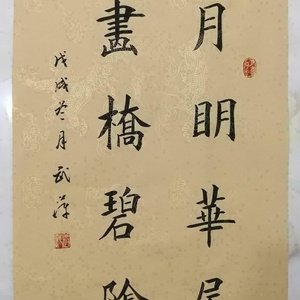 月明華屋
畫橋碧陰
戊戌冬月武萍